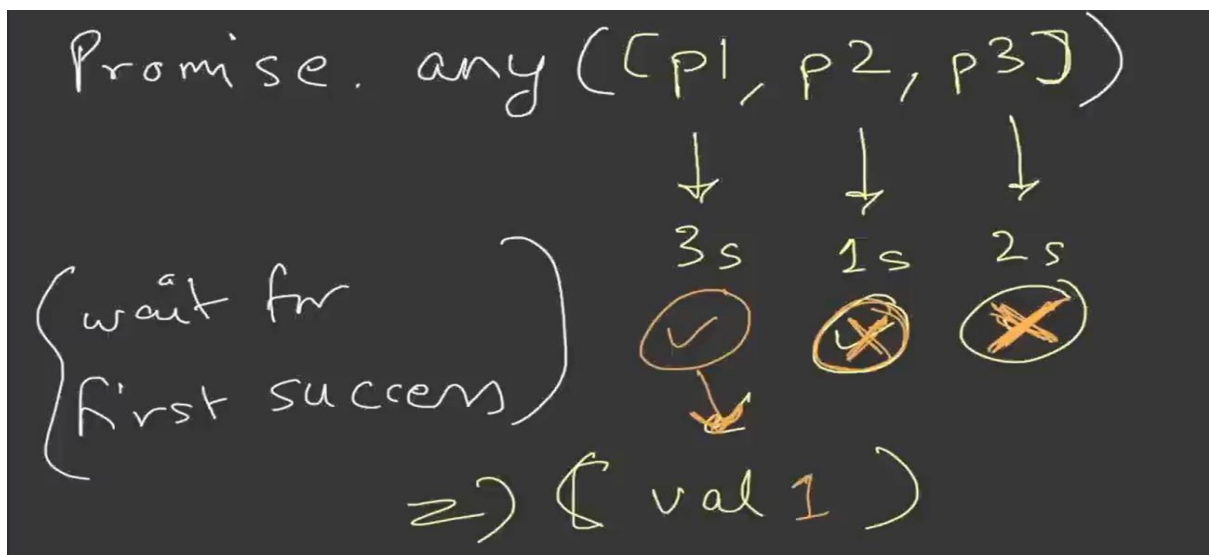 Promise. any ([p1, p2, p3])
3s 1s 2s
wait for
first success
=> ( val 1 )